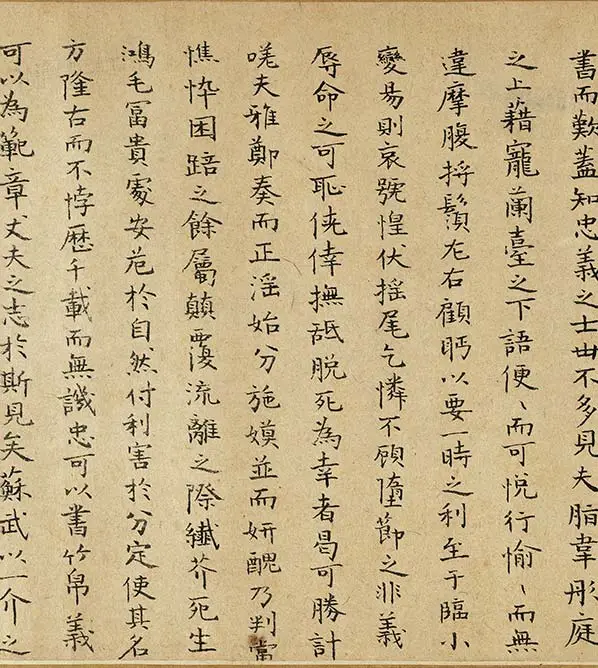 書而歎蓋知忠義之士世不多見夫脂韋彤庭
之上藉寵蘭臺之下語便〻而可悅行愉〻而無
違摩腹捋鬚左右顧眄以要一時之利至于臨小
變易則哀號惶伏搖尾乞憐不顧墮節之非義
辱命之可恥僥倖撫舐脫死為幸者曷可勝計
嗟夫雅鄭奏而正淫始分施嫫並而妍醜乃判當
憔悴困踣之餘屬顛覆流離之際纖芥死生
鴻毛冨貴處安危於自然付利害於分定使其名
方隆古而不悖歷千載而無譏忠可以書竹帛義
可以為範章丈夫之志於斯見矣蘇武以一介之